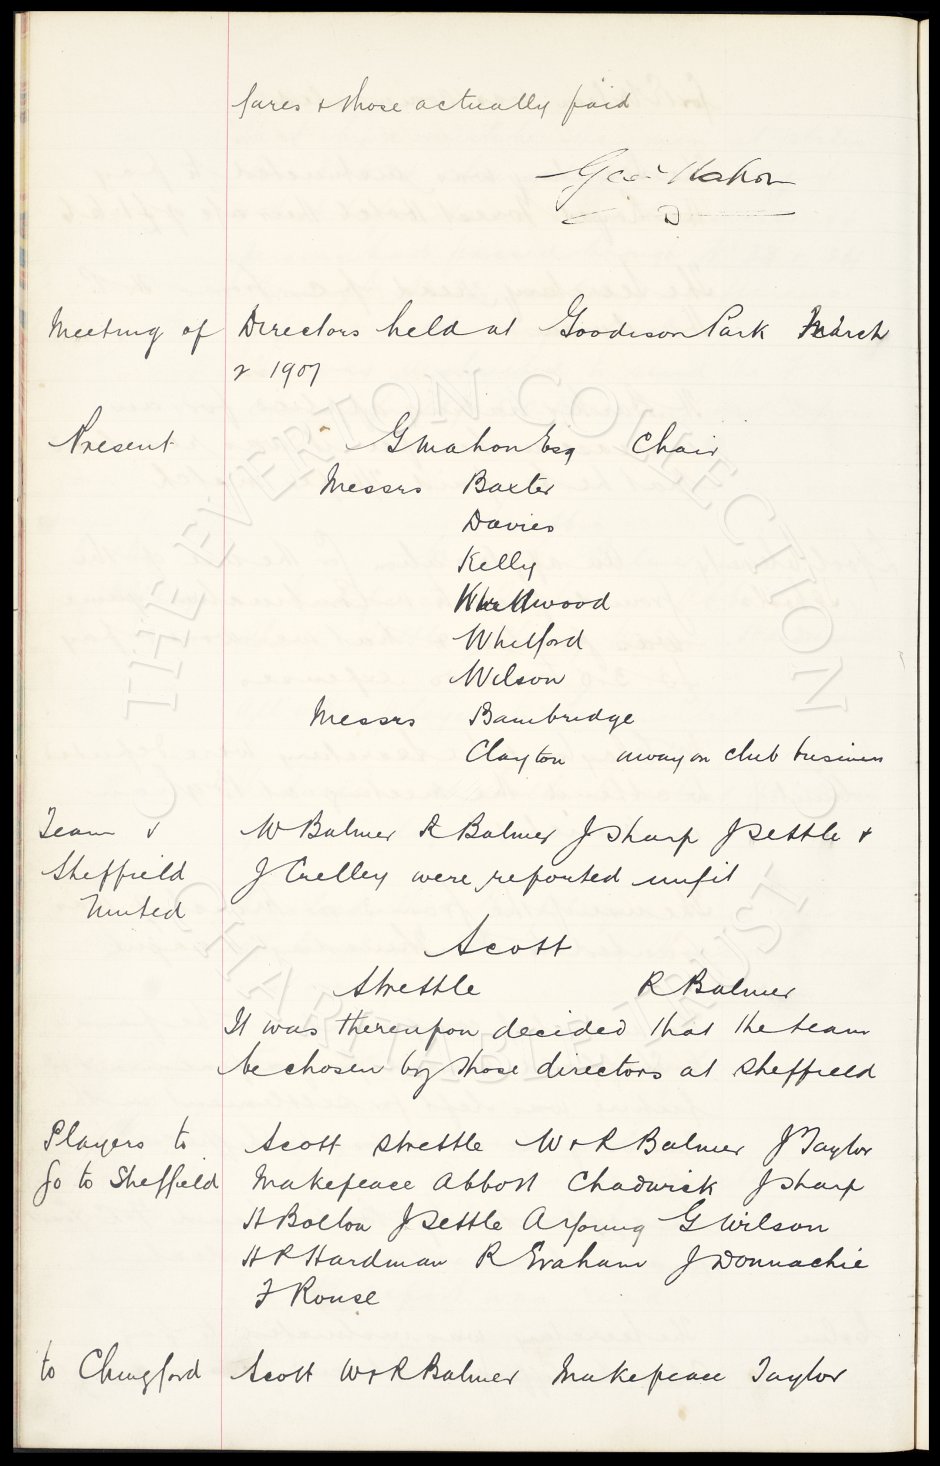 fares & those actually paid
Geo Mahon
Meeting of Directors held at Goodison Park March
2 1907
Present G Mahon Esq Chair
Messrs Baxter
Davies
Kelly
Kirkwood
Whitford
Wilson
Messrs Bainbridge
Clayton away on club business
Team v W Balmer R Balmer J Sharp J Settle &
Sheffield J Crelley were reported unfit
United
Scott
Strettle R Balmer
It was thereupon decided that the team
be chosen by those directors at Sheffield
Players to Scott Strettle W & R Balmer J Taylor
go to Sheffield Makepeace Abbott Chadwick J Sharp
H Bolton J Settle A Young G Wilson
H P Hardman R Graham J Donnachie
F Rouse
to Chingford Scott W & R Balmer Makepeace Taylor
THE EVERTON COLLECTION
CHARITABLE TRUST